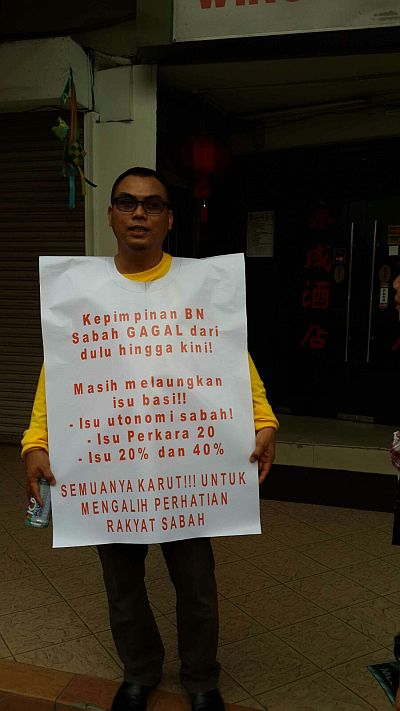 Kepimpinan BN
Sabah GAGAL dari
dulu hingga kini!
Masih melaungkan
isu basi!!
- Isu utonomi sabah!
- Isu Perkara 20
- Isu 20% dan 40%
SEMUANYA KARUT!!! UNTUK
MENGALIH PERHATIAN
RAKYAT SABAH
成酒店